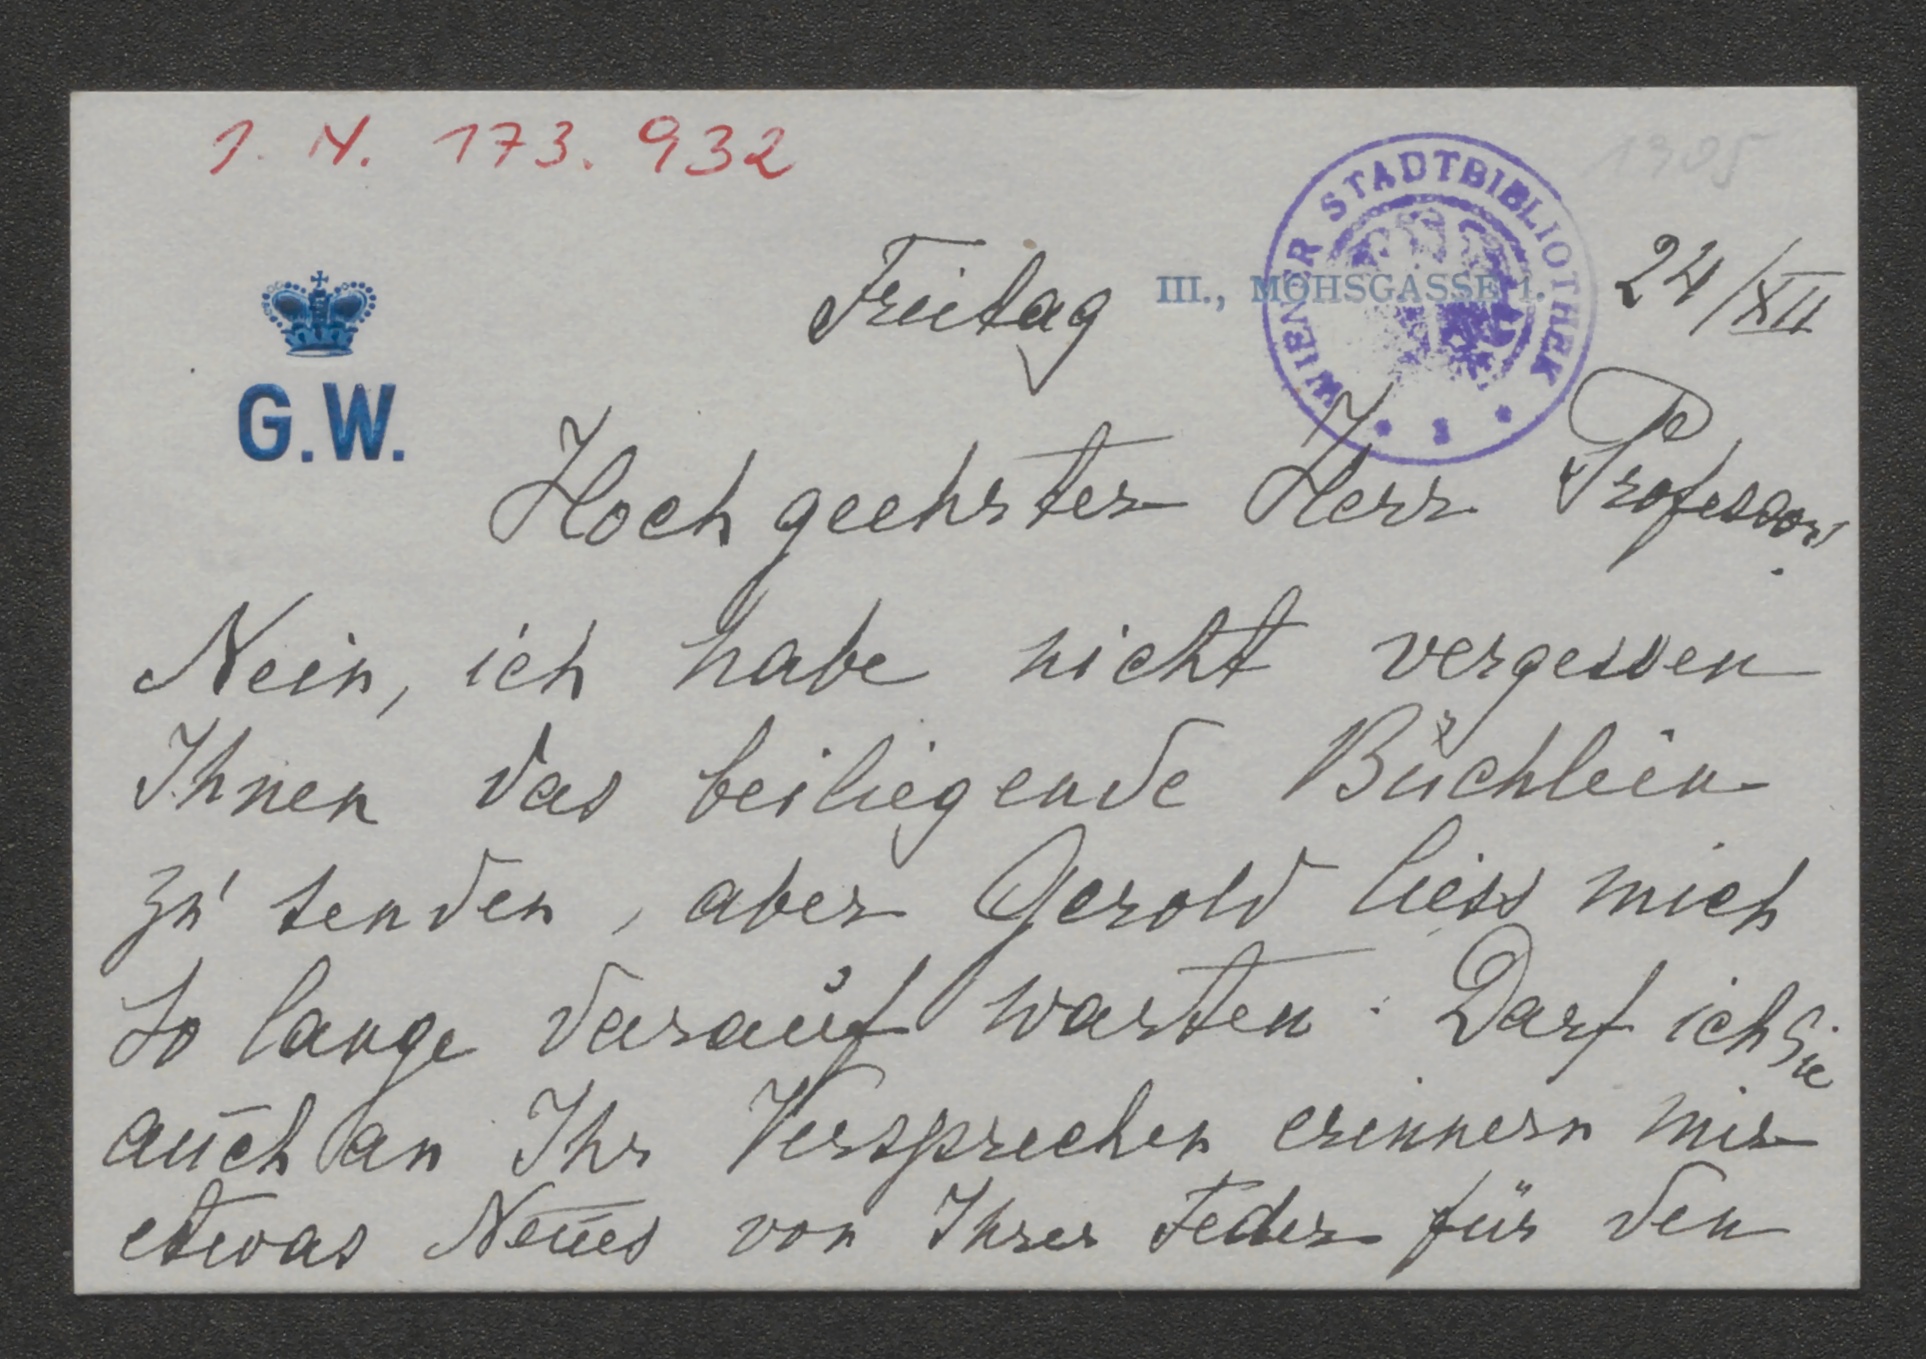 I. N. 173.932
1305
WIENER STADTBIBLIOTHEK
Freitag III., MOHSGASSE 1. 24/XII
G.W.
Hochgeehrter Herr Professor.
Nein, ich habe nicht vergessen
Ihnen das beiliegende Büchlein
zu senden, aber Gerold liess mich
so lange darauf warten. Darf ich Sie
auch an Ihr Versprechen erinnern mir
etwas Neues von Ihrer Feder für den